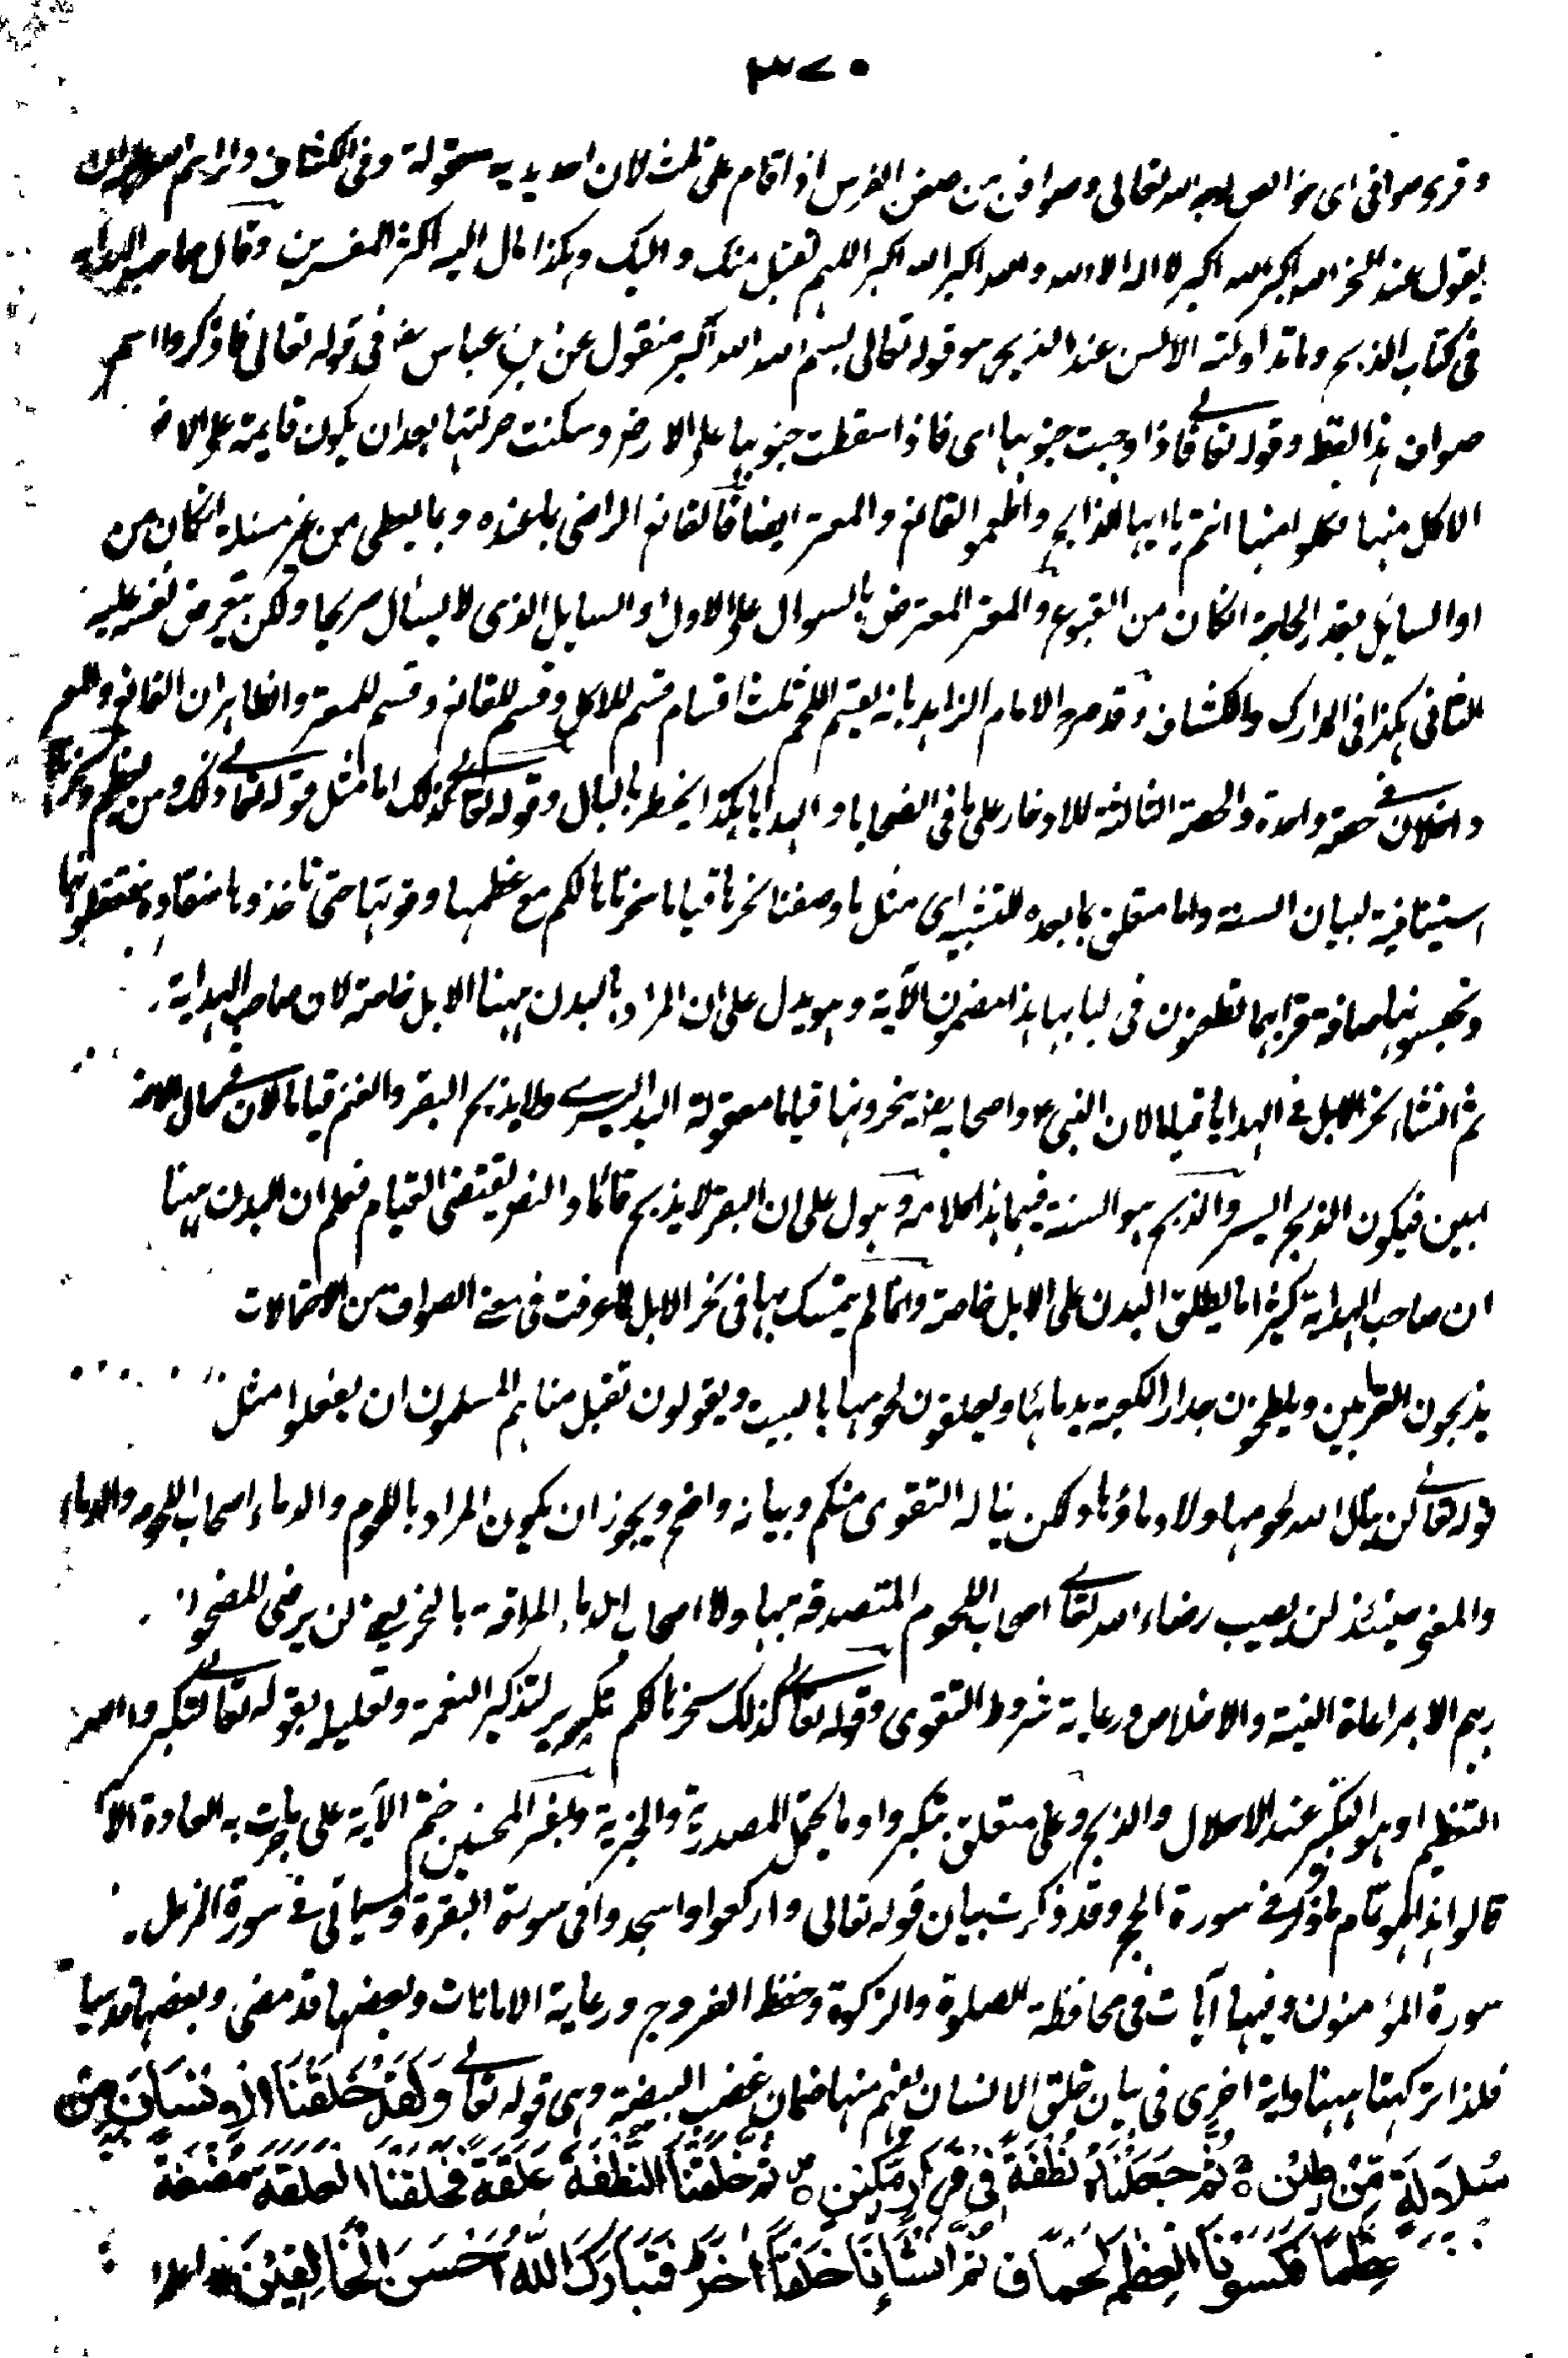 ٣٧٠
وقرئ صوافى اى خوالص لوجه الله تعالى وصوافن من صفن الفرس اذا قام على ثلث لان احد يديه معقولة وفى الكشاف
يقول عند النحر الله اكبر الله اكبر لا اله الا الله والله اكبر الله اكبر اللهم تقبل منك واليك وهكذا مال اليه اكثر المفسرين وقال صاحب الهداية
فى كتاب الذبح وما تداولته الالسن عند الذبح هو قوله تعالى بسم الله الله اكبر منقول عن بن عباس رض فى قوله تعالى فاذكروا اسم
صواف هذا لفظه وقوله تعالى فاذا وجبت جنوبها اى فاذا سقطت جنوبها على الارض وسكنت حركتها بعد ان يكون قايمة على
الاكل منها فكلوا منها انتم يا ايها الذابح واطعموا القانع والمعتر ايضا فالقانع الراضى بما عنده وبما يعطى من غير مسئلة انكان من
او السايل بقدر الحاجة انكان من القنوع والمعتر المعترض بالسوال على الاول او السايل الذى لا يسئال صريحا ولكن يتعرض نفسه عليه
للثانى هكذا فى المدارك والكشاف وقد صرح الامام الزاهد بانه يقسم اللحم ثلث اقسام قسم للاكل وقسم للقانع وقسم للمعتر والظاهر ان القانع والمعتر
داخلان فى حصة واحدة والحصة الثالثة للادخار على ما فى الضحايا والهدايا هكذا يخطر بالبال وقوله تعالى كذلك اما مثل قوله تعالى ذلك ومن يعظم
استينافية لبيان السنة واما متعلق بما بعده للتشبيه اى مثل ما وصفنا نحرها قياما سخرناها لكم مع عظمها وقوتها حتى تاخذوها منقادة فتعقلونها
وتحبسونها صافة قوايمها تطعنون فى لباتها هذا مضمون الآية وهو يدل على ان المراد بالبدن ههنا الابل خاصة لان صاحب الهداية
ثم انشاء نحر الابل فى الهدايا قياما لان النبى ع واصحابه رض نحروها قياما معقولة اليد اليسرى ولا يذبح البقر والغنم قياما لان فى حال
ابين فيكون الذبح ايسر والذبح هو السنة فيهما هذا كلامه وهو دل على ان البقر لا يذبح قائما والنص يقتضى القيام فعلم ان البدن ههنا
ان صاحب الهداية كثيرا ما يطلق البدن على الابل خاصة وانما لم يتمسك بها فى نحر الابل لما عرفت فى معنى الصواف من الاحتمالات
يذبحون القرابين ويلطخون جدار الكعبة بدمائها ويعلقون لحومها بالبيت ويقولون تقبل منا هم المسلمون ان يفعلوا مثل
قوله تعالى لن ينال الله لحومها ولا دماؤها ولكن يناله التقوى منكم وبيانه واضح ويجوز ان يكون المراد باللحوم والدماء اصحاب اللحوم والدماء
والمعنى حينئذ لن يصيب رضاء الله تعالى اصحاب اللحوم المتصدقة بها ولا اصحاب الدماء المراقة بالنحر يعنى لن يرضى المضحون
ربهم الا بمراعاة النية والاخلاص ورعاية شروط التقوى وقوله تعالى كذلك سخرناها لكم تكرير لتذكير النعمة وتعليل بقوله تعالى لتكبروا الله
التعظيم او هو التكبير عند الاحلال والذبح وعلى متعلق بتكبروا وما يحتمل المصدرية والخبرية وبشر المحسنين ختم الآية على ما جرت به العادة
قالوا هذا هو تمام ما ذكر فى سورة الحج وقد ذكرت بيان قوله تعالى واركعوا واسجدوا فى سورة البقرة وسياتى فى سورة المزمل
سورة المؤمنون وفيها آيات فى محافظة للصلوة والزكوة وحفظ الفروج ورعاية الامانات وبعضها قد مضى وبعضها قد
فلذا تركتها ههنا واية اخرى فى بيان خلق الانسان يفهم منها ضمان غصب البيضة وهى قوله تعالى وَلَقَدْ خَلَقْنَا الْاِنْسَانَ مِنْ
سُلَالَةٍ مِّنْ طِيْنٍ ثُمَّ جَعَلْنَاهُ نُطْفَةً فِى قَرَارٍ مَّكِيْنٍ ثُمَّ خَلَقْنَا النُّطْفَةَ عَلَقَةً فَخَلَقْنَا الْعَلَقَةَ مُضْغَةً
عِظٰمًا فَكَسَوْنَا الْعِظٰمَ لَحْمًا ق ثُمَّ اَنْشَاْنَاهُ خَلْقًا اٰخَرَ فَتَبَارَكَ اللّٰهُ اَحْسَنُ الْخَالِقِيْنَ